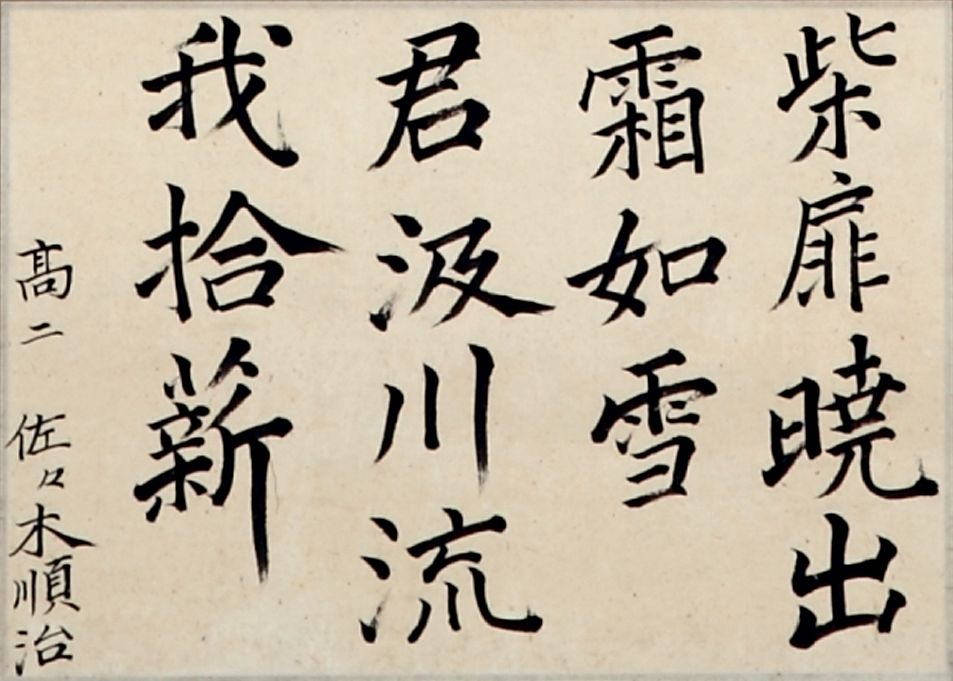 柴扉暁出
霜如雪
君汲川流
我拾薪
高二 佐々木順治